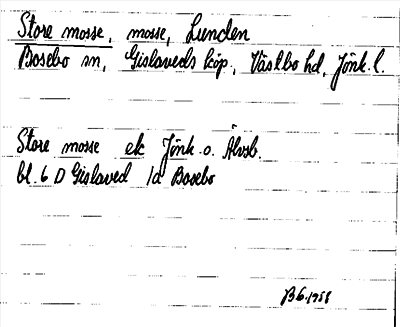 Store mosse, mosse, Lunden
Bosebo sn, Gislaveds köp, Västbo hd, Jönk. l.
Store mosse ek Jönk. o. Älvsb.
bl. 6 D Gislaved 1d Bosebo
B6.1958